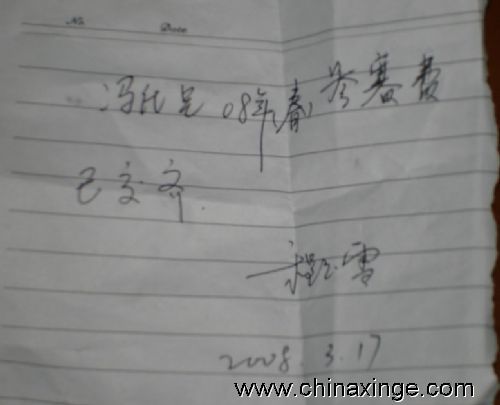 No. Date
冯 08年春参赛费
已交齐
程雪
2008.3.17
www.chinaxinge.com